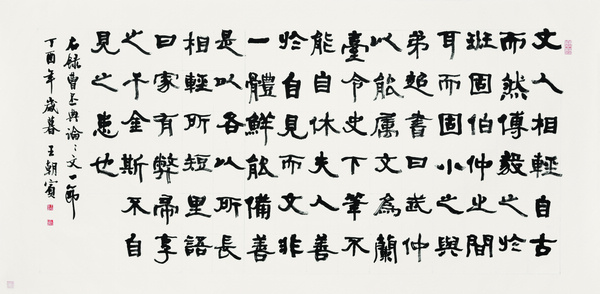 文人相輕自古
而然傅毅之於
班固伯仲之間
耳而固小之與
弟超書曰武仲
以能屬文為蘭
臺令史下筆不
能自休夫人善
於自見而文非
一體鮮能備善
是以各以所長
相輕所短里語
曰家有弊帚享
之千金斯不自
見之患也
右錄曹丕典論〻文一節
丁酉年歲暮王朝賓